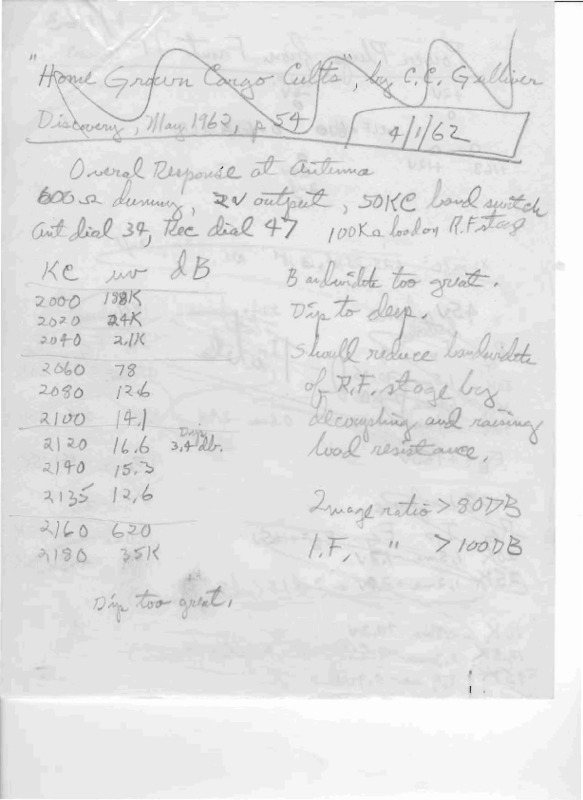 "Home Grown Cargo Cults", by C.C. Gulliver
Discovery, May 1962, p 54
4/1/62
Overal Response at Antenna
600Ω dummy, 2V output, 50KC band switch
Ant dial 34, Rec dial 47 100KΩ load on R.F. stage
KC uv dB
2000 198K
2020 24K
2040 2.1K
2060 78
2080 12.6
2100 14.1
2120 16.6 Dip 3.4 db.
2140 15.3
2135 12.6
2160 620
2180 35K
Dip too great.
Bandwidth too great.
Dip to deep.
Should reduce bandwidth
of R.F. stage by
decoupling and raising
load resistance.
Image ratio > 80DB
I.F. " > 100DB